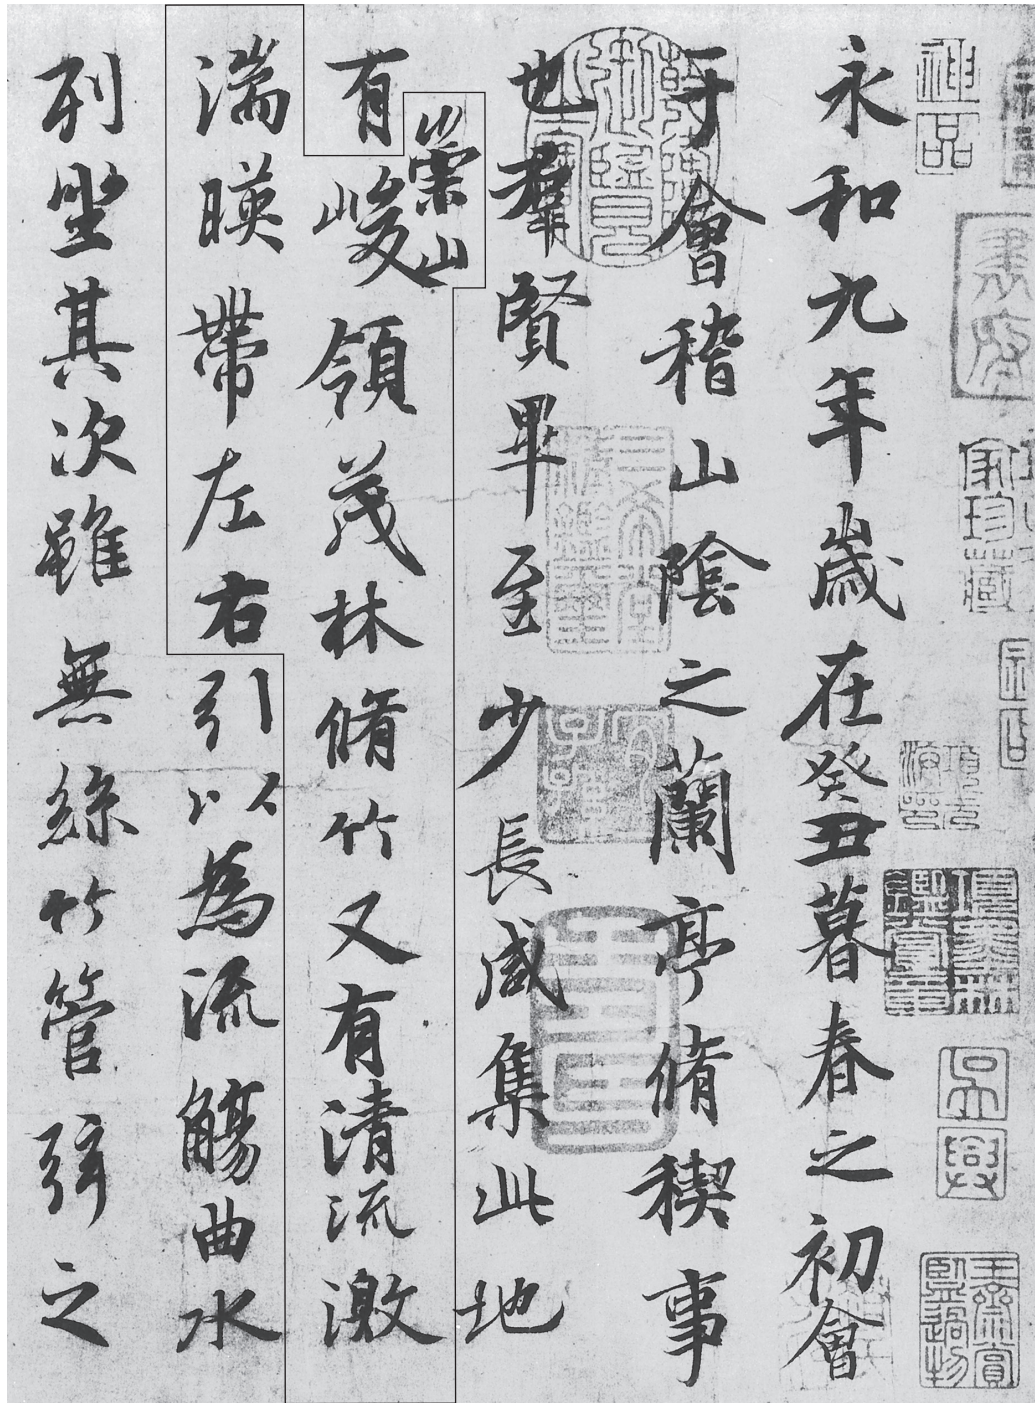 神品
吳興
永和九年歲在癸丑暮春之初會
于會稽山陰之蘭亭脩稧事
三希堂精鑑璽
宜子孫
也羣賢畢至少長咸集此地
有崇山峻領茂林脩竹又有清流激
湍暎帶左右引以為流觴曲水
列坐其次雖無絲竹管弦之